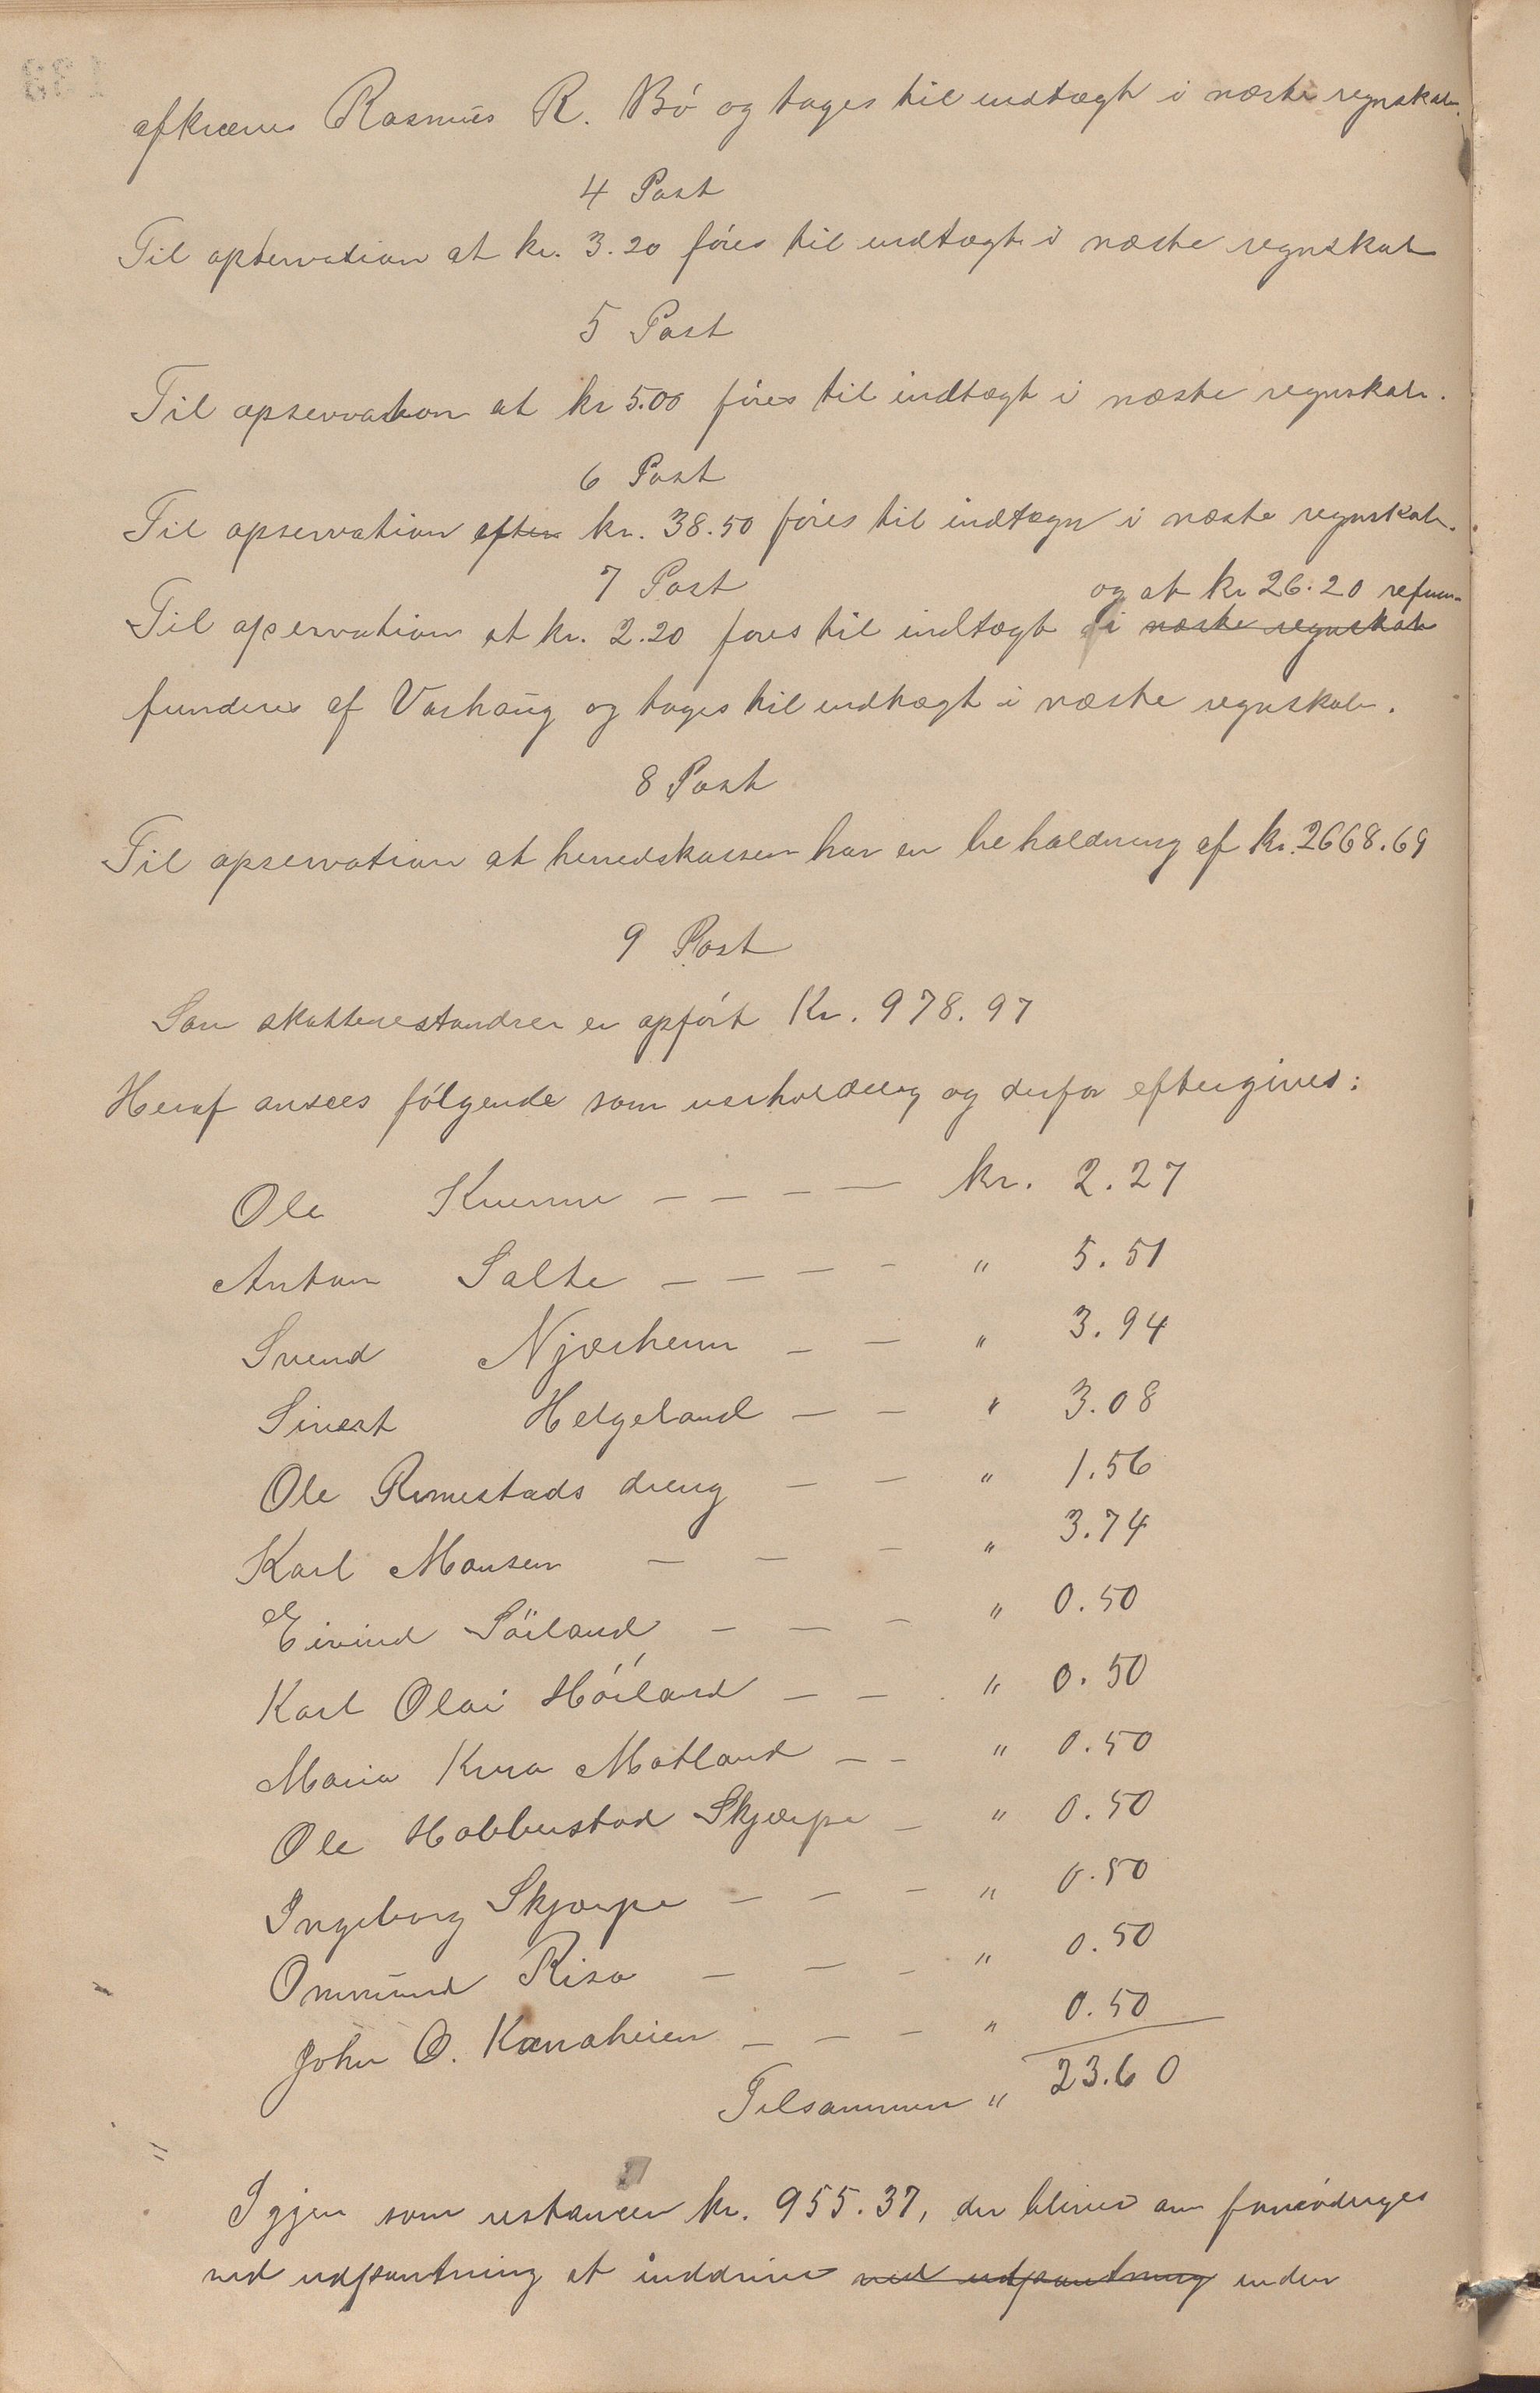 afkræves Rasmus R. Bö og tages til indtægt i næste regnskab.
4 Post
Til opservation at kr. 3.20 föres til indtægt i næste regnskab
5 Post
Til opservation at kr 5.00 föres til indtægt i næste regnskab.
6 Post
Til opservation efter kr. 38.50 föres til indtægn i næste regnskab.
7 Post
og at kr 26.20 refun-
Til opservation at kr. 2.20 fores til indtægt i næste regnskab
funderes af Varhaug og tages til indtægt i næste regnskab.
8 Post
Til opservation at herredskassen har en beholdning af kr. 2668.69
9 Post
Som skatterestandser er opfört Kr. 978.97
Heraf ansees fölgende som uerholdelig og derfor eftergives:
Ole Kverme — — — — kr. 2.27
Anton Salte — — — — " 5.51
Svend Njærheim — — " 3.94
Sivert Helgeland — — " 3.08
Ole Rimestads dreng — — " 1.56
Karl Monsen — — — " 3.74
Eivind Söiland — — — " 0.50
Karl Olai Höiland — — " 0.50
Maria Kura Motland — — " 0.50
Ole Hobberstad Skjærpe — " 0.50
Ingeborg Skjærpe — — — " 0.50
Ommund Risa — — — " 0.50
John O. Kanaheien — — — " 0.50
Tilsammen " 23.60
Igjen som restancer kr. 955.37, der bliver om fornödiges
ved udpantning at inddrive ved udpantning inden